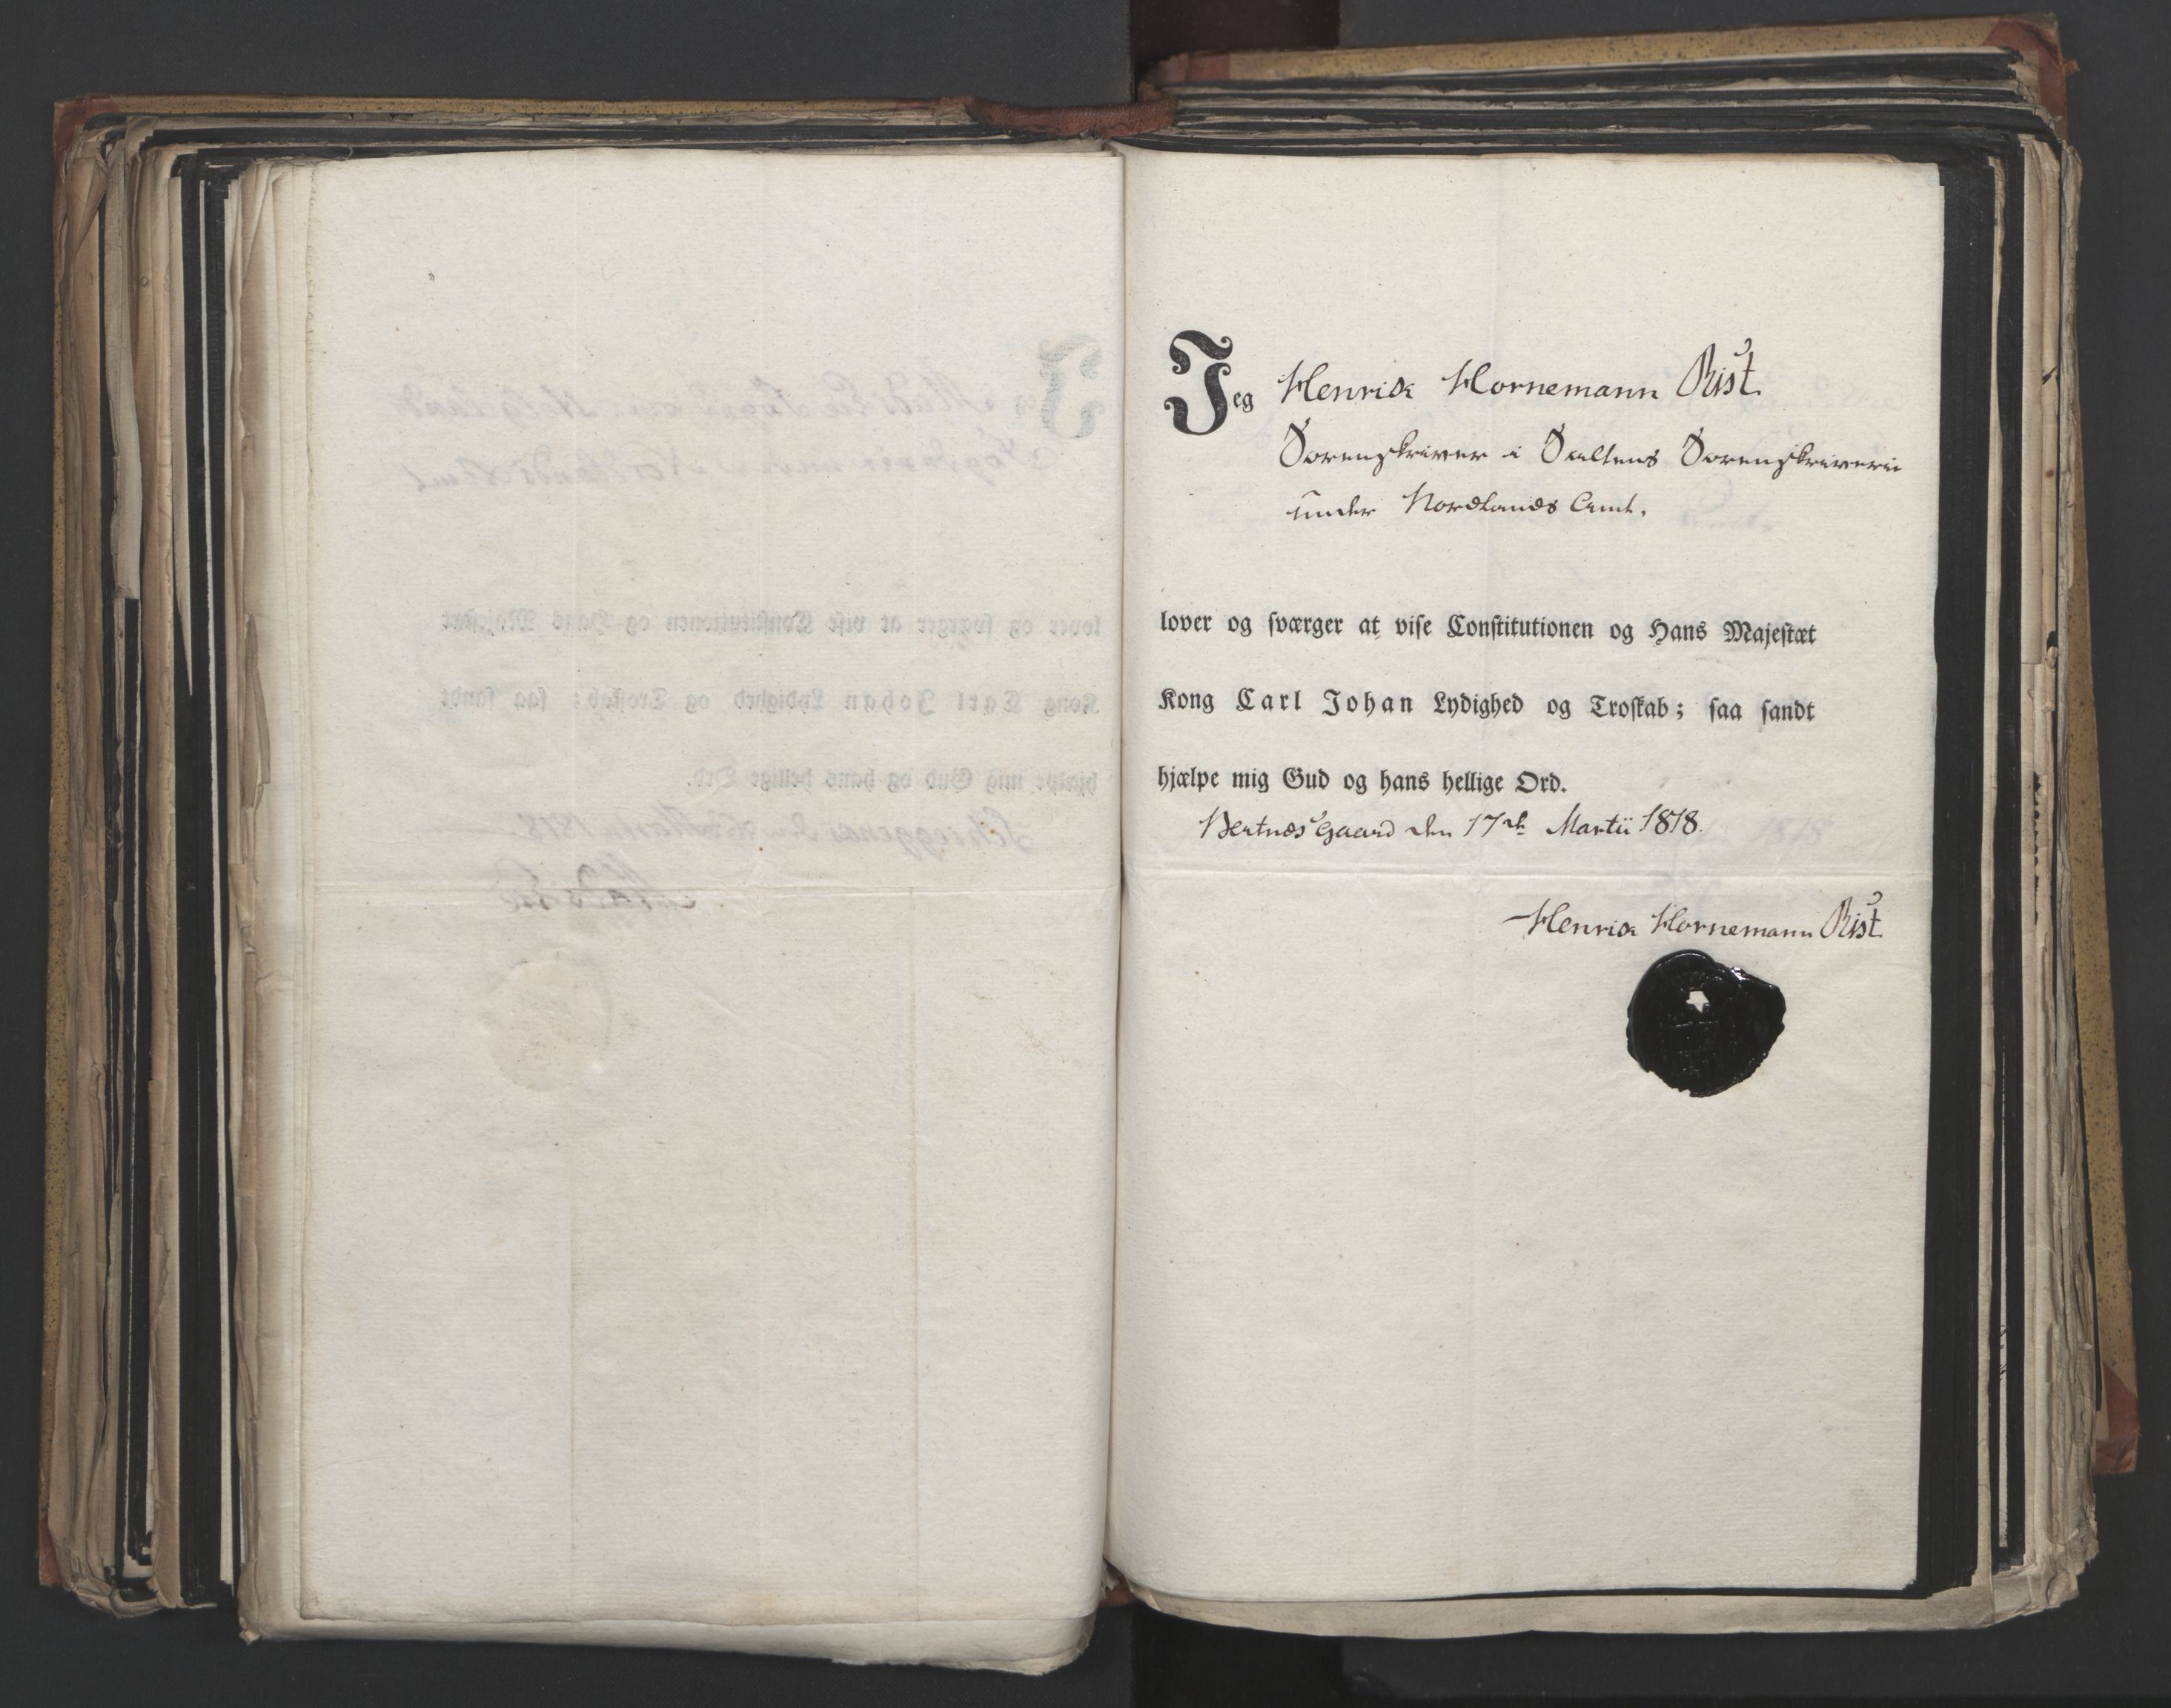 Jeg Henrik Hornemann Rist
Sorenskriver i Saltens Sorenskriverie
under Nordlands Amt.
lover og sværger at vise Constitutionen og Hans Majestæt
Kong Carl Johan Lydighed og Troskab; saa sandt
hjælpe mig Gud og hans hellige Ord.
Bertnæs Gaard den 17de Martii 1818.
Henrik Hornemann Rist